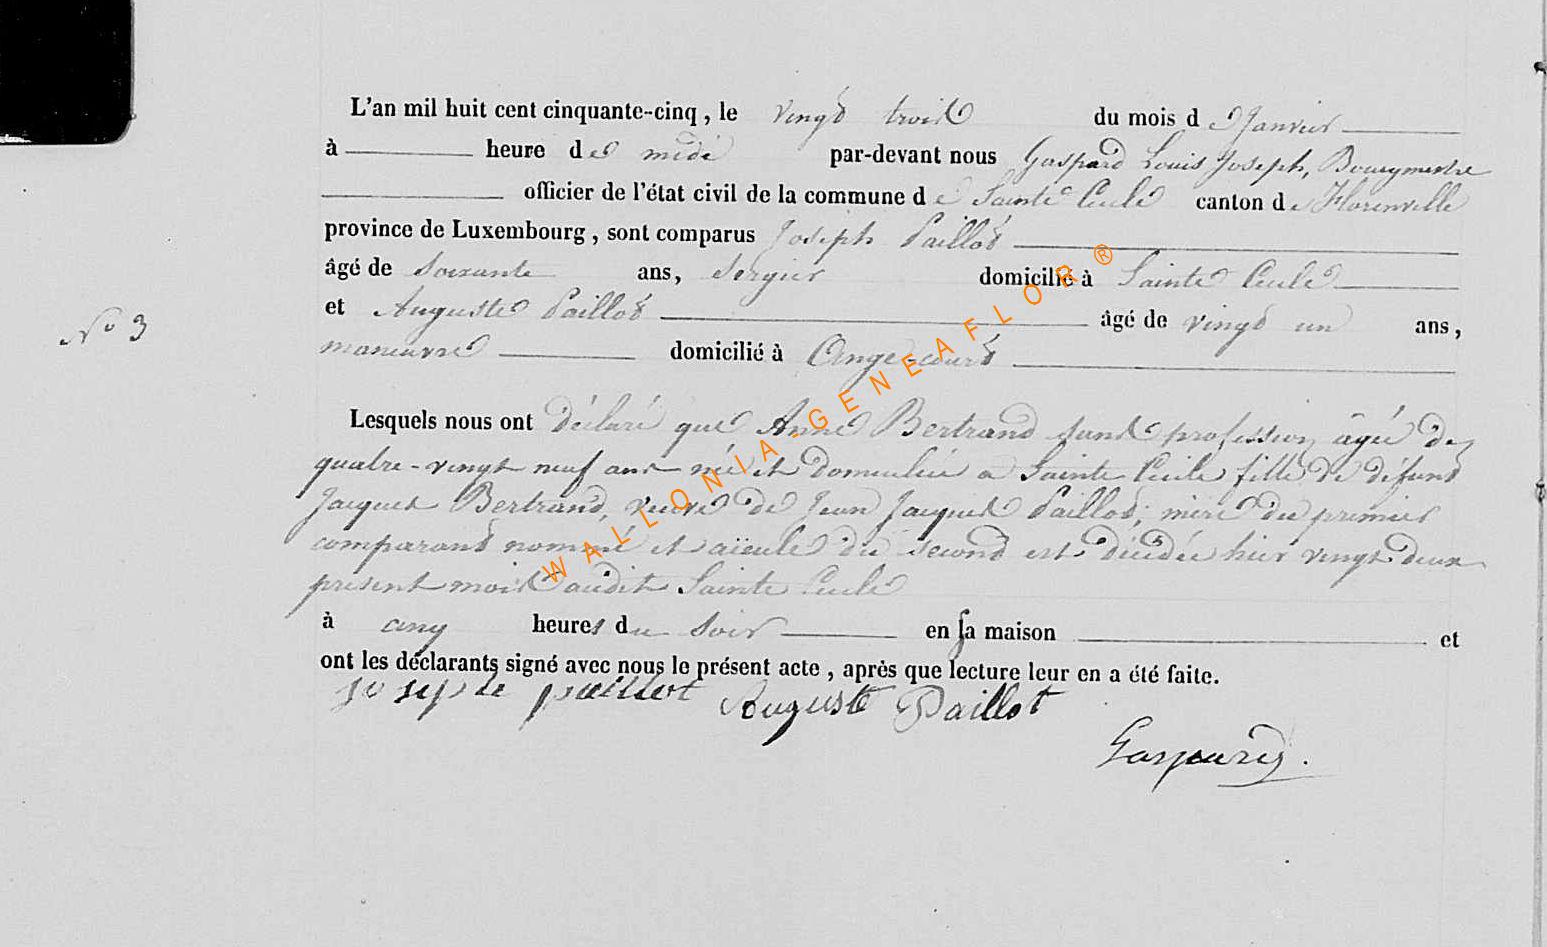 L'an mil huit cent cinquante-cinq, le vingt trois du mois de Janvier
à heure de midi par-devant nous Gaspard Louis Joseph, Bourgmestre
officier de l'état civil de la commune de Sainte Cecile canton de Florenville
province de Luxembourg, sont comparus Joseph Paillot
âgé de soixante ans, Sergier domicilié à Sainte Cecile
et Auguste Paillot âgé de vingt un ans,
N° 3
manœuvre domicilié à Ange-court
Lesquels nous ont déclaré que Anne Bertrand sans profession, âgée de
quatre-vingt neuf ans née et domiciliée a Sainte Cecile fille de défunt
Jacques Bertrand, veuve de Jean Jacques Paillot, mère du premier
comparant nommé et aïeule du second est décédée hier vingt deux
présent mois audit Sainte Cecile
à cinq heures du soir en sa maison et
ont les déclarants signé avec nous le présent acte, après que lecture leur en a été faite.
joseph paillot Auguste Paillot
Gaspard.
WALLONIA-GENEAFLOR®